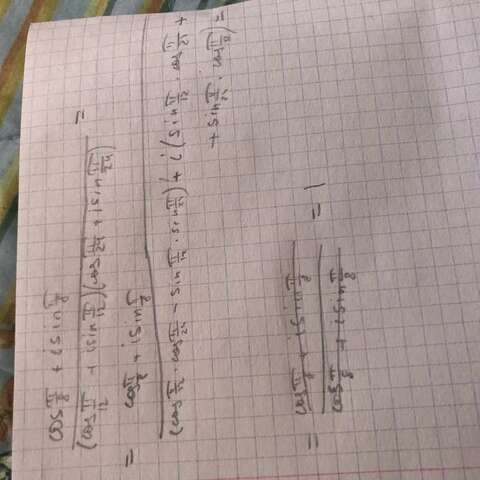 cos π/8 + i sin π/8
(cos π/12 + i sin π/12)(cos π/24 + i sin π/24) =
= cos π/8 + i sin π/8
(cos π/12 · cos π/24 − sin π/12 · sin π/24) + i (sin π/12 · cos π/24 +
+ sin π/24 · cos π/12) =
= cos π/8 + i sin π/8
cos π/8 + i sin π/8 = 1